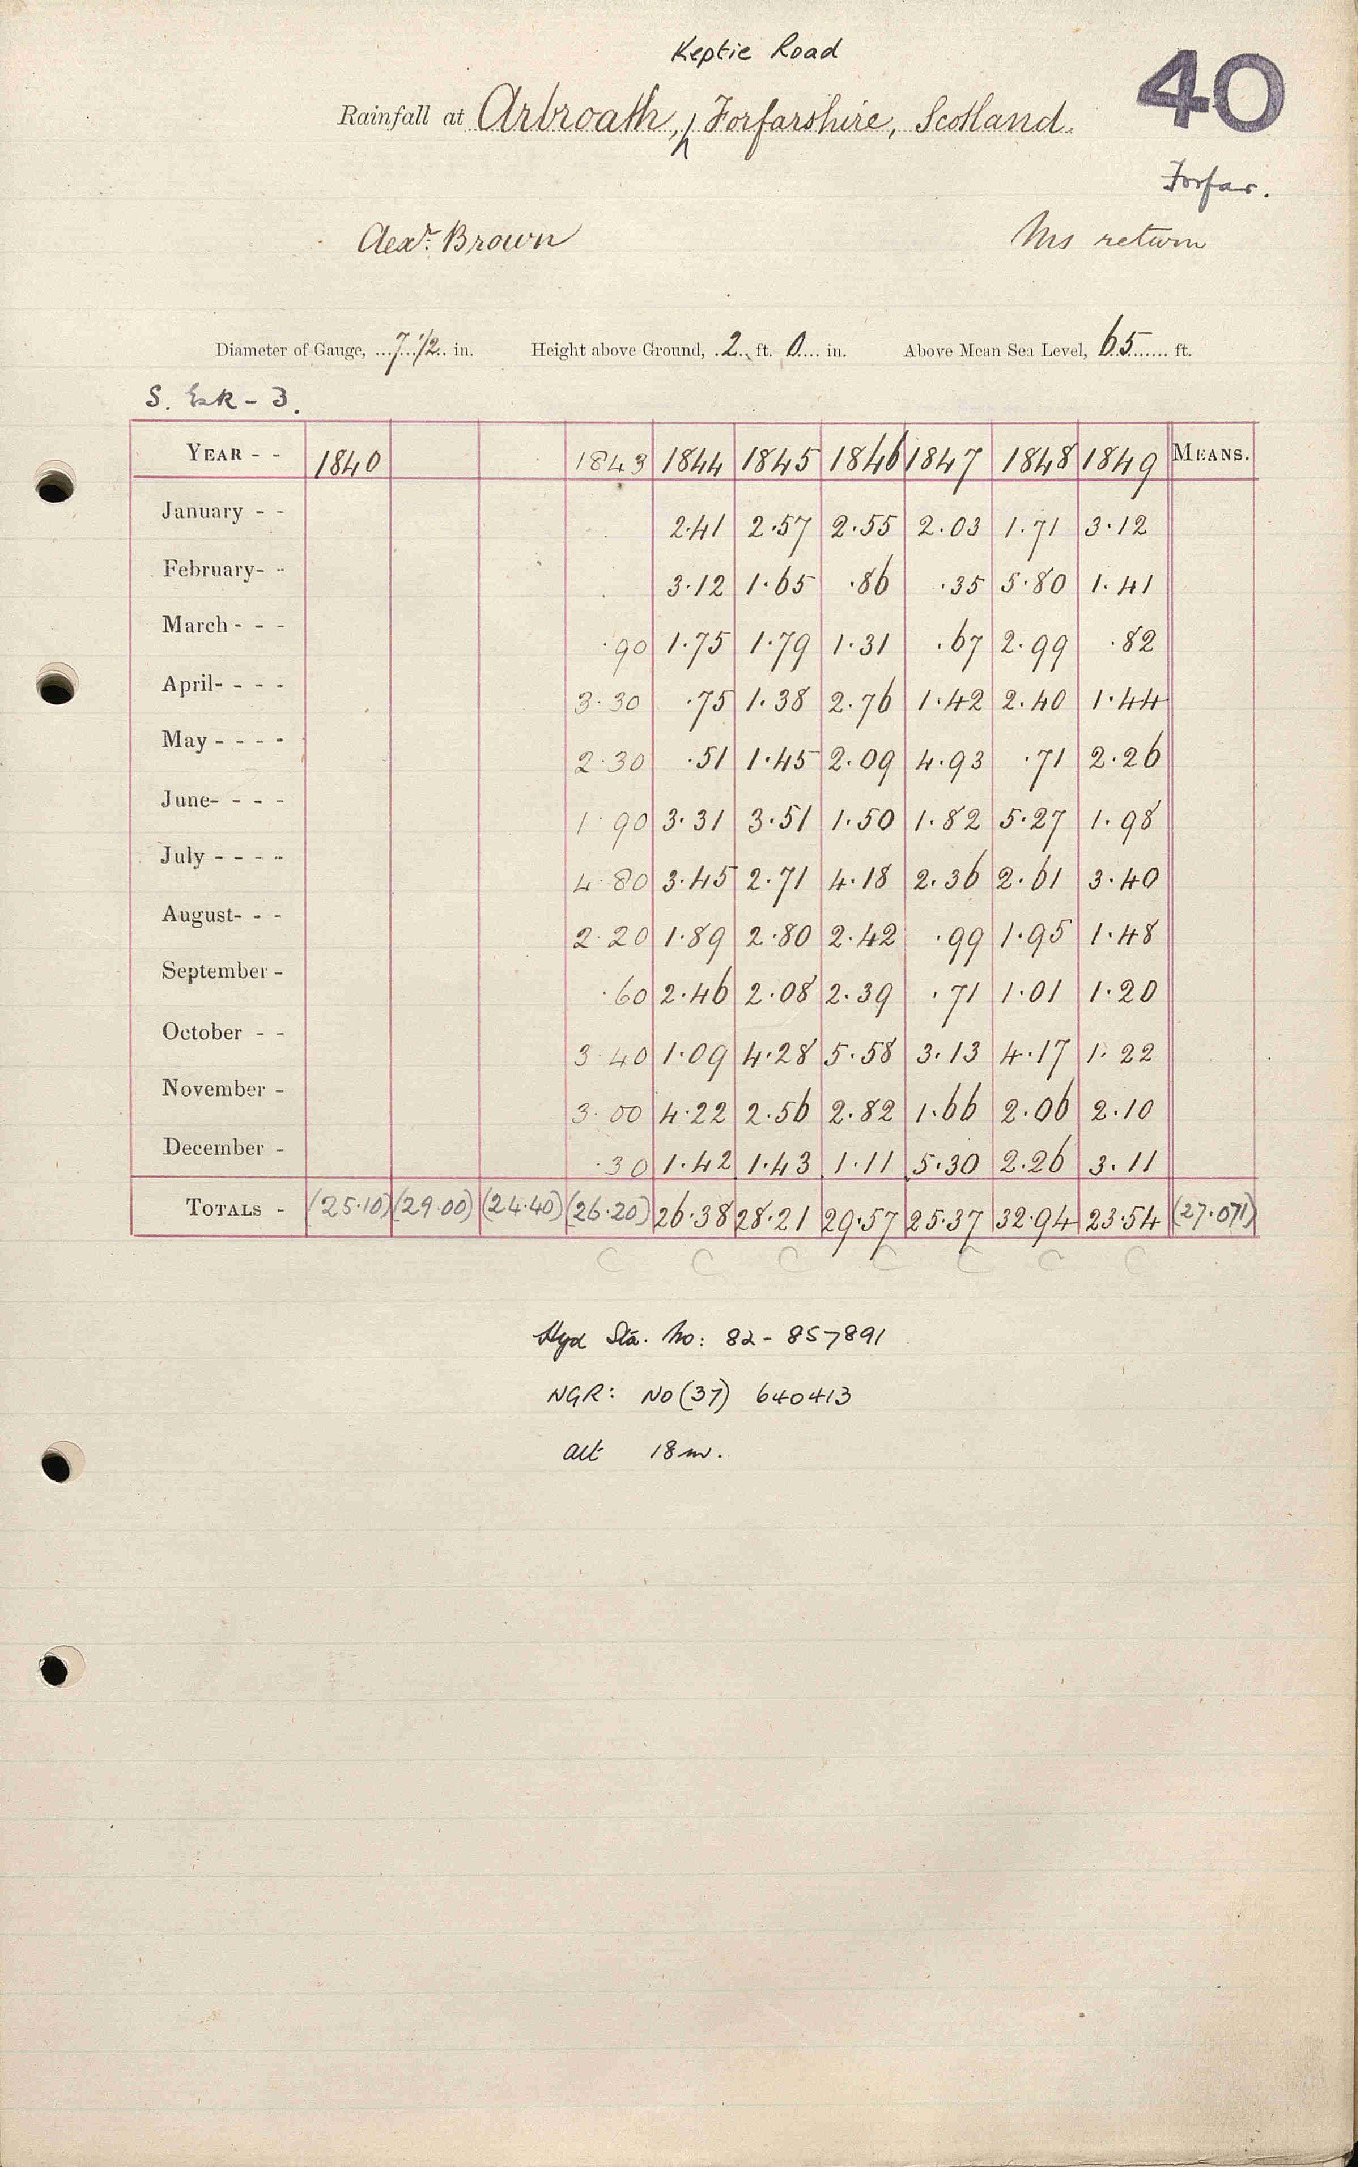 Keptie Road
40
Rainfall at Arbroath, Forfarshire, Scotland.
Forfar.
Alexr. Brown Ms return
Diameter of Gauge, 7 1/2 in. Height above Ground, 2 ft. 0 in. Above Mean Sea Level, 65 ft.
S. Esk - 3.
YEAR - - 1840 1843 1844 1845 1846 1847 1848 1849 MEANS.
January - - 2.41 2.57 2.55 2.03 1.71 3.12
February- - 3.12 1.65 .86 .35 5.80 1.41
March - - - .90 1.75 1.79 1.31 .67 2.99 .82
April- - - - 3.30 .75 1.38 2.76 1.42 2.40 1.44
May - - - - 2.30 .51 1.45 2.09 4.93 .71 2.26
June- - - - 1.90 3.31 3.51 1.50 1.82 5.27 1.98
July - - - - 4.80 3.45 2.71 4.18 2.36 2.61 3.40
August- - - 2.20 1.89 2.80 2.42 .99 1.95 1.48
September - .60 2.46 2.08 2.39 .71 1.01 1.20
October - - 3.40 1.09 4.28 5.58 3.13 4.17 1.22
November - 3.00 4.22 2.56 2.82 1.66 2.06 2.10
December - .30 1.42 1.43 1.11 5.30 2.26 3.11
TOTALS - (25.10) (29.00) (24.40) (26.20) 26.38 28.21 29.57 25.37 32.94 23.54 (27.071)
C C C C C C C
Hyd Sta. No: 82-857891
NGR: NO(37) 640413
alt 18m.